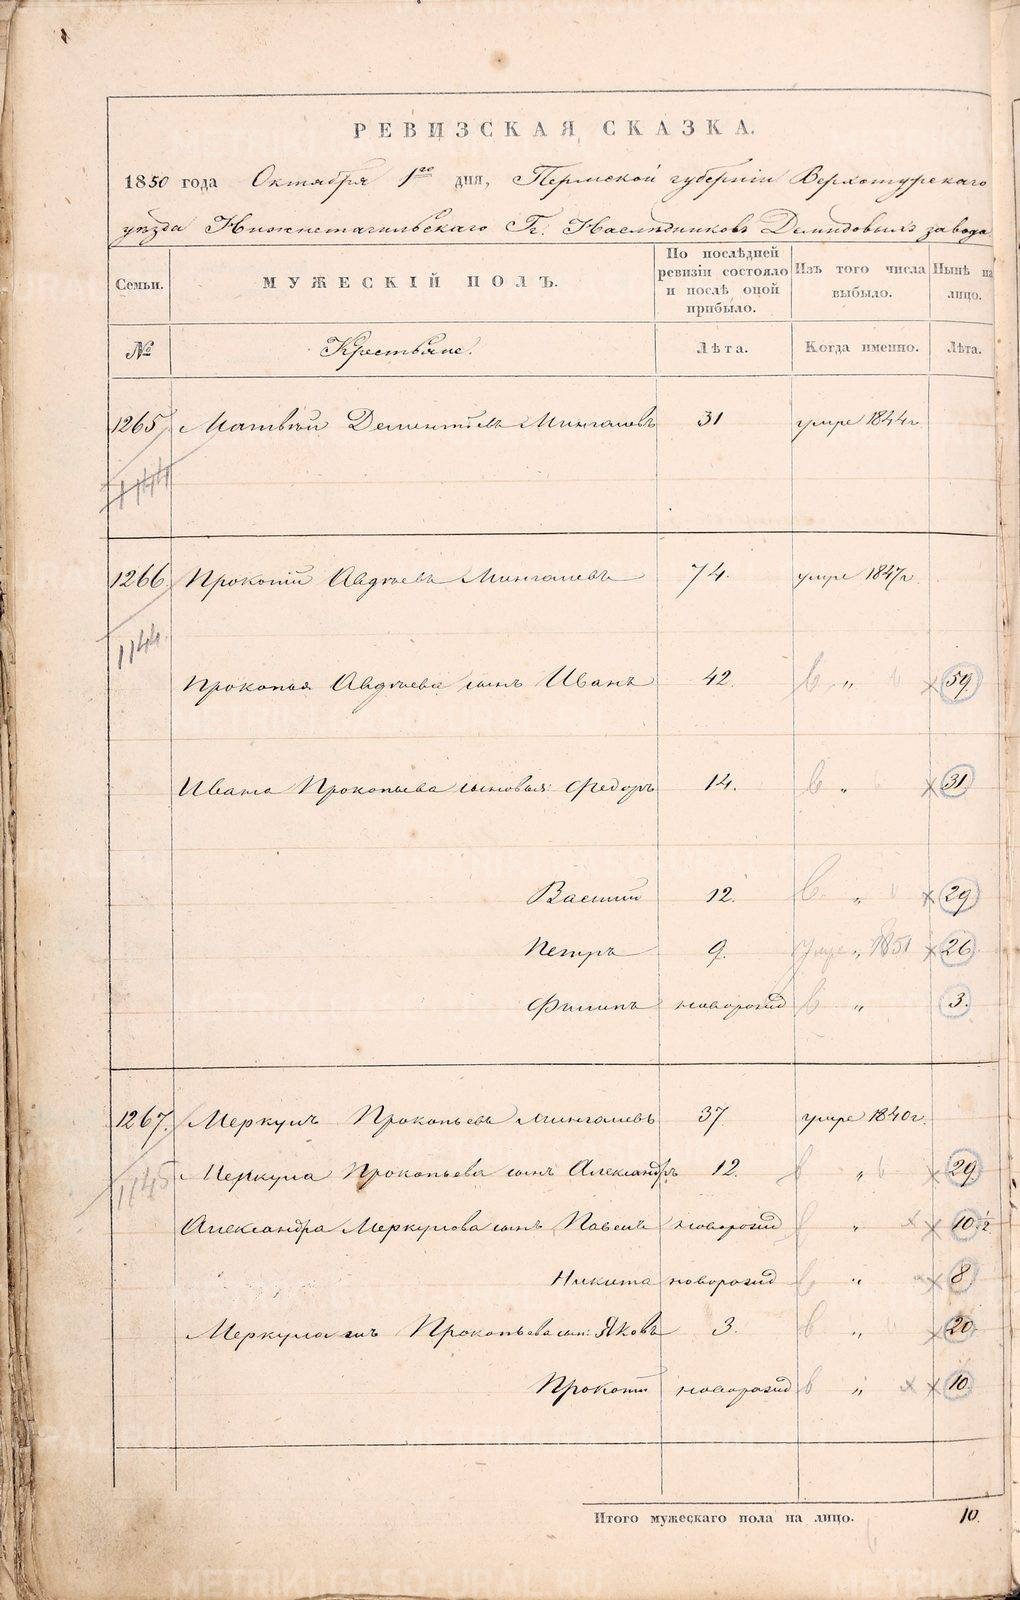 РЕВИЗСКАЯ СКАЗКА.
1850 года Октября 1го дня, Пермской губерніи Верхотурскаго
уѣзда Нижнетагильскаго Гг. Наслѣдниковъ Демидовыхъ завода
Семьи. МУЖЕСКІЙ ПОЛЪ. По послѣдней ревизіи состояло и послѣ оной прибыло. Изъ того числа выбыло. Нынѣ на лицо.
№ Крестьяне. Лѣта. Когда именно. Лѣта.
1265 Матвѣй Дементьевъ Мингалевъ 31 умре 1844 г.
1144
1266 Прокопій Авдѣевъ Мингалевъ 74. умре 1847 г.
1144.
Прокопья Авдѣева сынъ Иванъ 42. „ 59
Ивана Прокопьева сыновья: Федоръ 14. „ 31
Василій 12. „ 29
Петръ 9. умре „ 1851 26
Филипъ новорожд „ 3.
1267. Меркулъ Прокопьевъ Мингалевъ 37 умре 1840 г.
1145
Меркула Прокопьева сынъ Александръ 12. „ 29
Александра Меркулова сынъ Павелъ новорожд „ 10 1/2
Никита новорожд „ 8
Меркула Прокопьева сын: Яковъ 3. „ 20
Прокопій новорожд „ 10
Итого мужескаго пола на лицо. 10.
METRIKI.GASO-URAL.RU